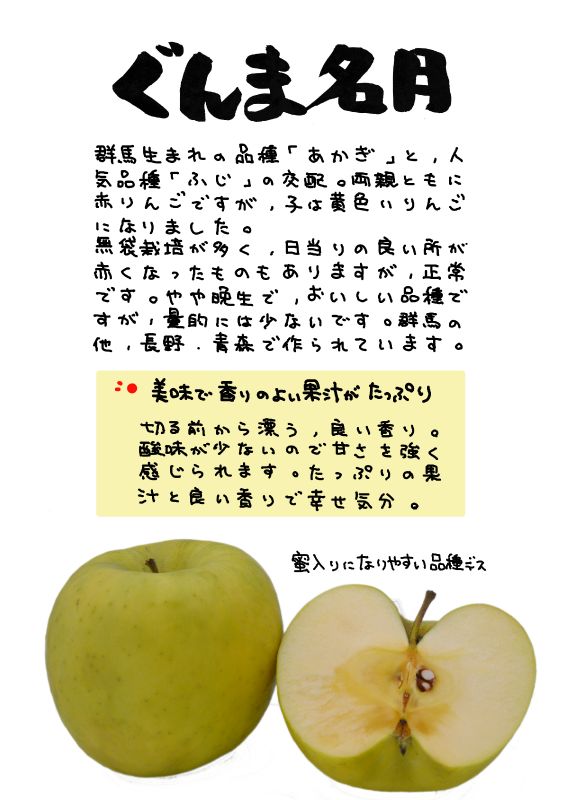 ぐんま名月
群馬生まれの品種「あかぎ」と,人
気品種「ふじ」の交配。両親ともに
赤りんごですが,子は黄色いりんご
になりました。
無袋栽培が多く,日当りの良い所が
赤くなったものもありますが,正常
です。やや晩生で,おいしい品種で
すが,量的には少ないです。群馬の
他,長野.青森で作られています。
美味で香りのよい果汁がたっぷり
切る前から漂う,良い香り。
酸味が少ないので甘さを強く
感じられます。たっぷりの果
汁と良い香りで幸せ気分。
蜜入りになりやすい品種デス